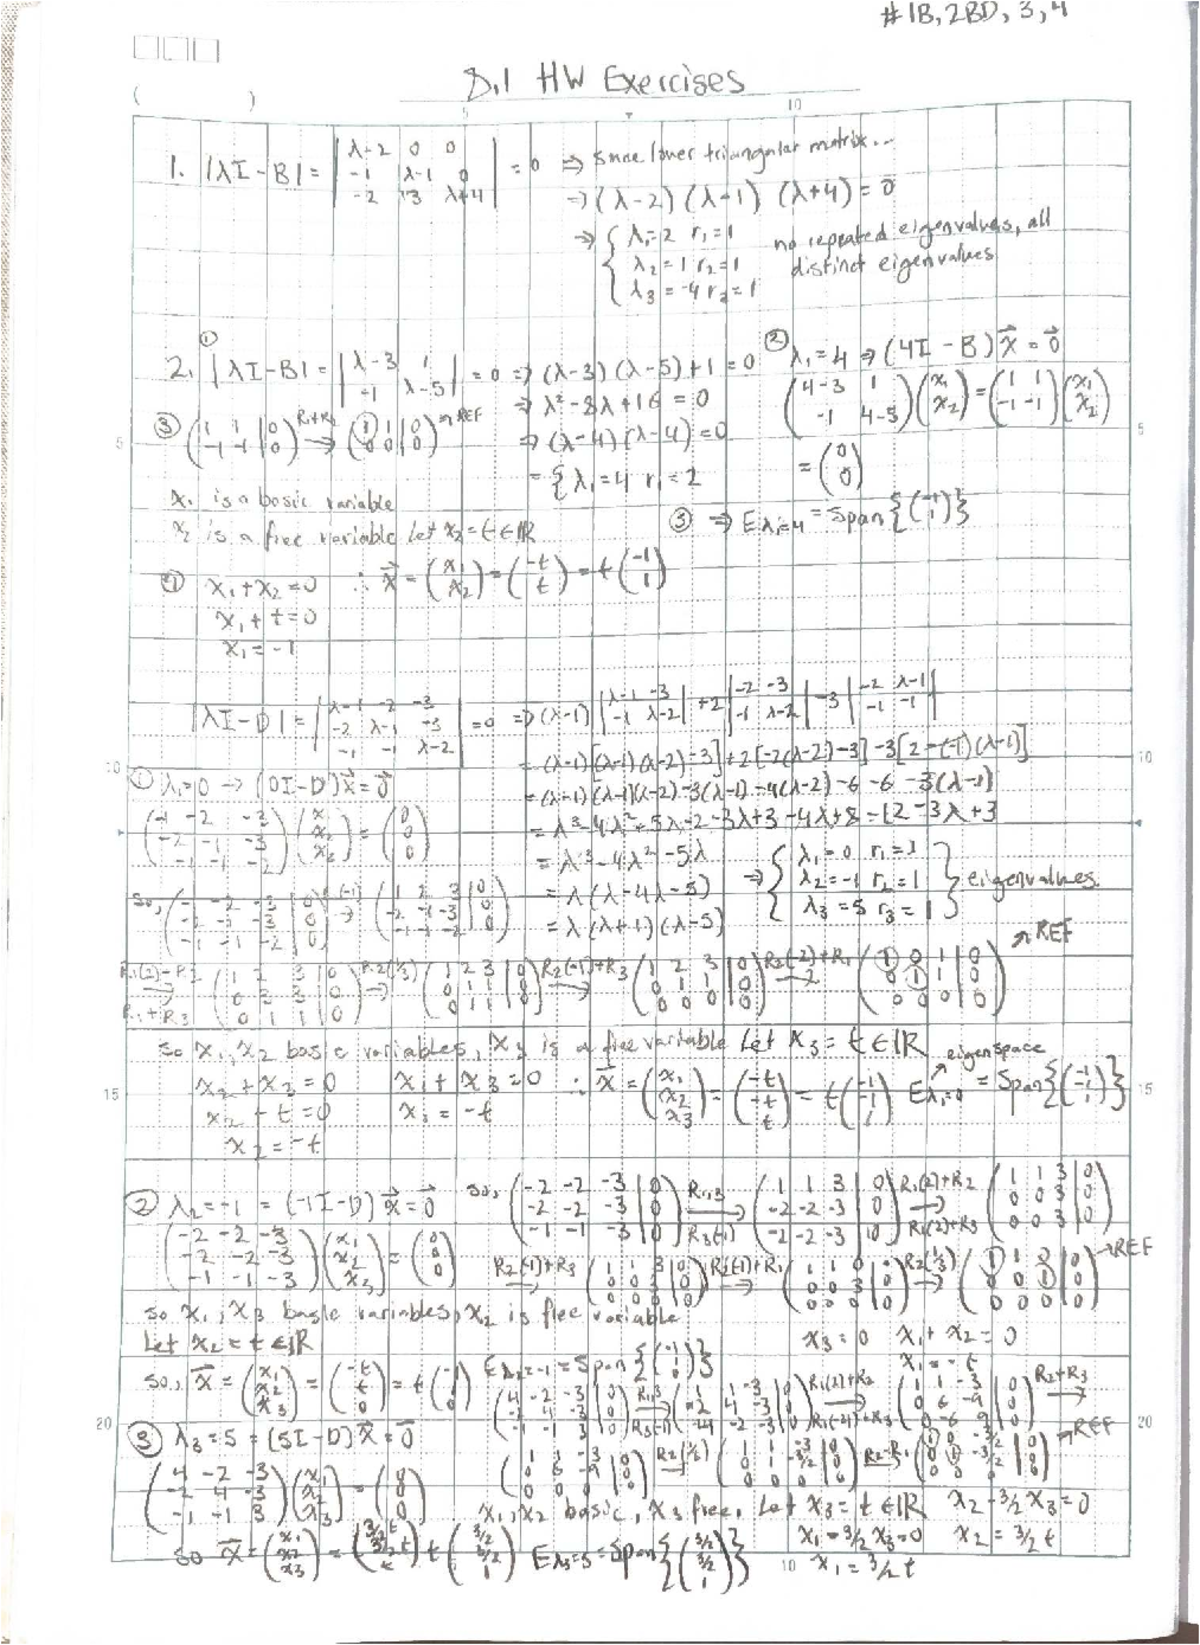 #1B, 2BD, 3, 4
8.1 HW Exercises
( )
5 10
1. |λI-B| = |λ-2 0 0; -1 λ-1 0; -2 13 λ+4| = 0 ⇒ since lower triangular matrix...
⇒ (λ-2)(λ-1)(λ+4) = 0
⇒ { λ₁=2 r₁=1
λ₂=1 r₂=1
λ₃=-4 r₂=1
no repeated eigenvalues, all
distinct eigenvalues
2. ① |λI-B| = |λ-3 1; -1 λ-5| = 0 ⇒ (λ-3)(λ-5)+1 = 0
⇒ λ²-8λ+16 = 0
⇒ (λ-4)(λ-4) = 0
= { λ₁=4 r₁=2
② λ₁=4 ⇒ (4I-B)x⃗=0⃗
(4-3 1; -1 4-5)(x₁; x₂) = (1 1; -1 -1)(x₁; x₂)
= (0; 0)
③ (1 1 | 0; -1 -1 | 0) R₁+R₂ → (① 1 | 0; 0 0 | 0) → REF
x₁ is a basic variable
x₂ is a free variable let x₂=t∈ℝ
③ ⇒ Eλ₁=4 = Span{(-1; 1)}
④ x₁+x₂=0 ∴ x⃗ = (x₁; x₂) = (-t; t) = t(-1; 1)
x₁+t=0
x₁=-1
|λI-D| = |λ-1 -2 -3; -2 λ-1 -3; -1 -1 λ-2| = 0 ⇒ (λ-1)|λ-1 -3; -1 λ-2| +2|-2 -3; -1 λ-2| -3|-2 λ-1; -1 -1|
= (λ-1)[(λ-1)(λ-2)-3]+2[-2(λ-2)-3]-3[2-(-1)(λ-1)]
= (λ-1)(λ-1)(λ-2)-3(λ-1)-4(λ-2)-6-6-3(λ-1)
= λ³-4λ²+5λ-2-3λ+3-4λ+8-12-3λ+3
= λ³-4λ²-5λ
= λ(λ-4λ-5)
= λ(λ+1)(λ-5)
⇒ { λ₁=0 r₁=1
λ₂=-1 r₂=1
λ₃=5 r₃=1 } eigenvalues
① λ₁=0 → (0I-D)x⃗=0⃗
(-1 -2 -3; -2 -1 -3; -1 -1 -2)(x₁; x₂; x₃) = (0; 0; 0)
so, (-1 -2 -3 | 0; -2 -1 -3 | 0; -1 -1 -2 | 0) → (1 2 3 | 0; -2 -1 -3 | 0; -1 -1 -2 | 0)
R₁+R₃ → (1 2 3 | 0; 0 3 3 | 0; 0 1 1 | 0) R₂(⅓) → (1 2 3 | 0; 0 1 1 | 0; 0 1 1 | 0) R₂(-1)+R₃ → (1 2 3 | 0; 0 1 1 | 0; 0 0 0 | 0) R₂(-2)+R₁ → (① 0 1 | 0; 0 ① 1 | 0; 0 0 0 | 0) → REF
so x₁, x₂ basic variables, x₃ is a free variable Let x₃=t∈ℝ
x₂+x₃=0 x₁+x₃=0 ∴ x⃗ = (x₁; x₂; x₃) = (-t; -t; t) = t(-1; -1; 1) Eλ₁=0 = Span{(-1; -1; 1)}
eigenspace
x₂+t=0 x₁=-t
x₂=-t
② λ₂=-1 = (-1I-D)x⃗=0⃗ so, (-2 -2 -3 | 0; -2 -2 -3 | 0; -1 -1 -3 | 0) R₁,₃ R₃(-1) → (1 1 3 | 0; -2 -2 -3 | 0; -2 -2 -3 | 0) R₁(2)+R₂ R₁(2)+R₃ → (1 1 3 | 0; 0 0 3 | 0; 0 0 3 | 0)
(-2 -2 -3; -2 -2 -3; -1 -1 -3)(x₁; x₂; x₃) = (0; 0; 0)
R₂(-1)+R₃ → (1 1 3 | 0; 0 0 3 | 0; 0 0 0 | 0) R₂(-1)+R₁ → (1 1 0 | 0; 0 0 3 | 0; 0 0 0 | 0) R₂(⅓) → (① 1 0 | 0; 0 0 ① | 0; 0 0 0 | 0) → REF
so x₁, x₃ basic variables, x₂ is free variable
Let x₂=t∈ℝ
x₃=0 x₁+x₂=0
x₁=-t
so, x⃗ = (x₁; x₂; x₃) = (-t; t; 0) = t(-1; 1; 0) Eλ₂=-1 = Span{(-1; 1; 0)}
③ λ₃=5 = (5I-D)x⃗=0⃗
(4 -2 -3; -2 4 -3; -1 -1 3)(x₁; x₂; x₃) = (0; 0; 0)
R₂+R₃ →
(1 1 -3 | 0; 0 6 -9 | 0; 0 0 0 | 0) → (1 1 -3 | 0; 0 1 -3/2 | 0; 0 0 0 | 0) → REF
x₁, x₂ basic, x₃ free. Let x₃=t∈ℝ x₂-3/2x₃=0
x₁-3/2x₃=0 x₂=3/2t
x₁=3/2t
so x⃗ = (x₁; x₂; x₃) = (3/2t; 3/2t; t) t(3/2; 3/2; 1) Eλ₃=5 = Span{(3/2; 3/2; 1)}
5
10
15
20
5
10
15
20
10